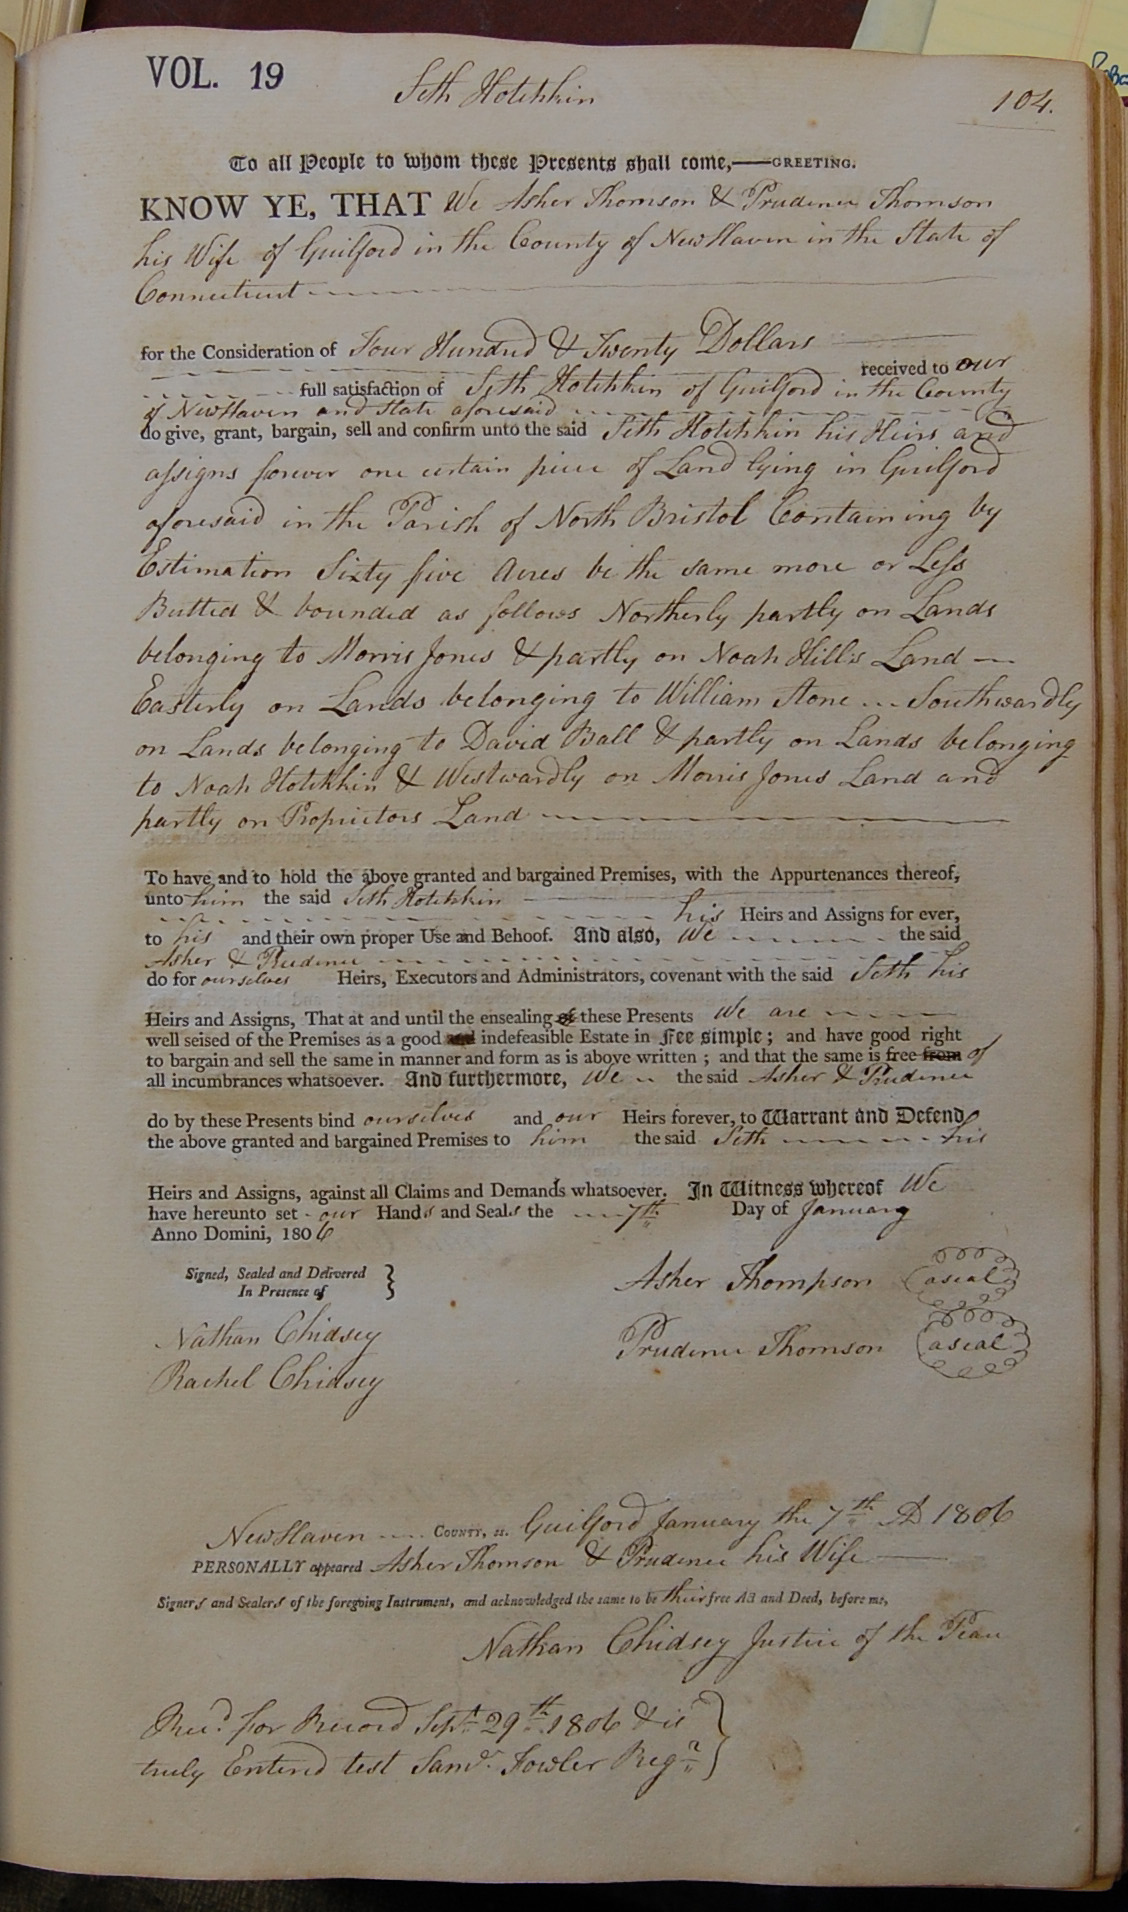 VOL. 19
Seth Hotchkin
104.
To all People to whom these Presents shall come,——GREETING.
KNOW YE, THAT We Asher Thomson & Prudence Thomson
his Wife of Guilford in the County of New Haven in the State of
Connecticut
for the Consideration of Four Hundred & Twenty Dollars
received to our
full satisfaction of Seth Hotchkin of Guilford in the County
of New Haven and State aforesaid
do give, grant, bargain, sell and confirm unto the said Seth Hotchkin his Heirs and
assigns forever one certain piece of Land lying in Guilford
aforesaid in the Parish of North Bristol Containing by
Estimation Sixty five Acres be the same more or Less
Butted & bounded as follows Northerly partly on Lands
belonging to Morris Jones & partly on Noah Hills Land
Easterly on Lands belonging to William Stone Southwardly
on Lands belonging to David Ball & partly on Lands belonging
to Noah Hotchkin & Westwardly on Morris Jones Land and
partly on Proprietors Land
To have and to hold the above granted and bargained Premises, with the Appurtenances thereof,
unto him the said Seth Hotchkin
his Heirs and Assigns for ever,
to his and their own proper Use and Behoof. And also, We the said
Asher & Prudence
do for ourselves Heirs, Executors and Administrators, covenant with the said Seth his
Heirs and Assigns, That at and until the ensealing of these Presents We are
well seised of the Premises as a good and indefeasible Estate in Fee simple; and have good right
to bargain and sell the same in manner and form as is above written; and that the same is free from of
all incumbrances whatsoever. And furthermore, We the said Asher & Prudence
do by these Presents bind ourselves and our Heirs forever, to Warrant and Defend
the above granted and bargained Premises to him the said Seth his
Heirs and Assigns, against all Claims and Demands whatsoever. In Witness whereof We
have hereunto set our Hands and Seals the 7th Day of January
Anno Domini, 1806
Signed, Sealed and Delivered
In Presence of
Asher Thompson a seal
Nathan Chidsey
Prudence Thomson a seal
Rachel Chidsey
New Haven County, ss. Guilford January the 7th AD 1806
PERSONALLY appeared Asher Thomson & Prudence his Wife
Signers and Sealers of the foregoing Instrument, and acknowledged the same to be their free Act and Deed, before me,
Nathan Chidsey Justice of the Peace
Recd. for Record Sept. 29th 1806 & is
truly Entered test Saml. Fowler Regr.